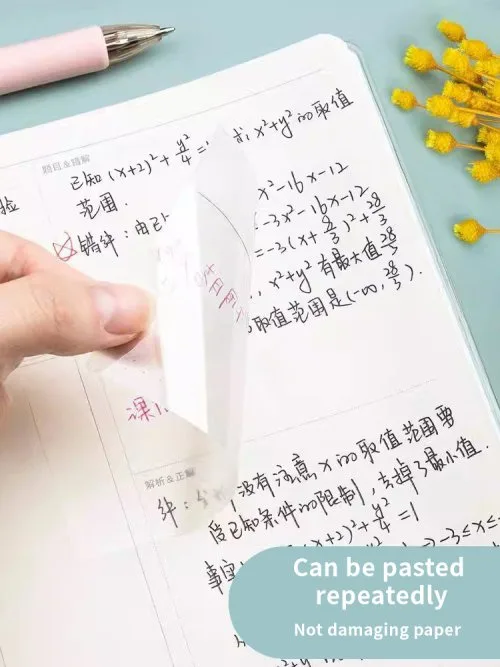 题目&错解
已知(x+2)²+y²/4=1,求x²+y²的取值
范围.
错解:由已
x²-16x-12
=-3x²-16x-12
=-3(x+8/3)²+28/3
x²+y²有最大值28/3
取值范围是(-∞,28/3).
课
解析&正解
没有注意x的取值范围要
受已知条件的限制,丢掉了最小值.
(x+2)²+y²/4=1
-3≤x≤-
Can be pasted
repeatedly
Not damaging paper